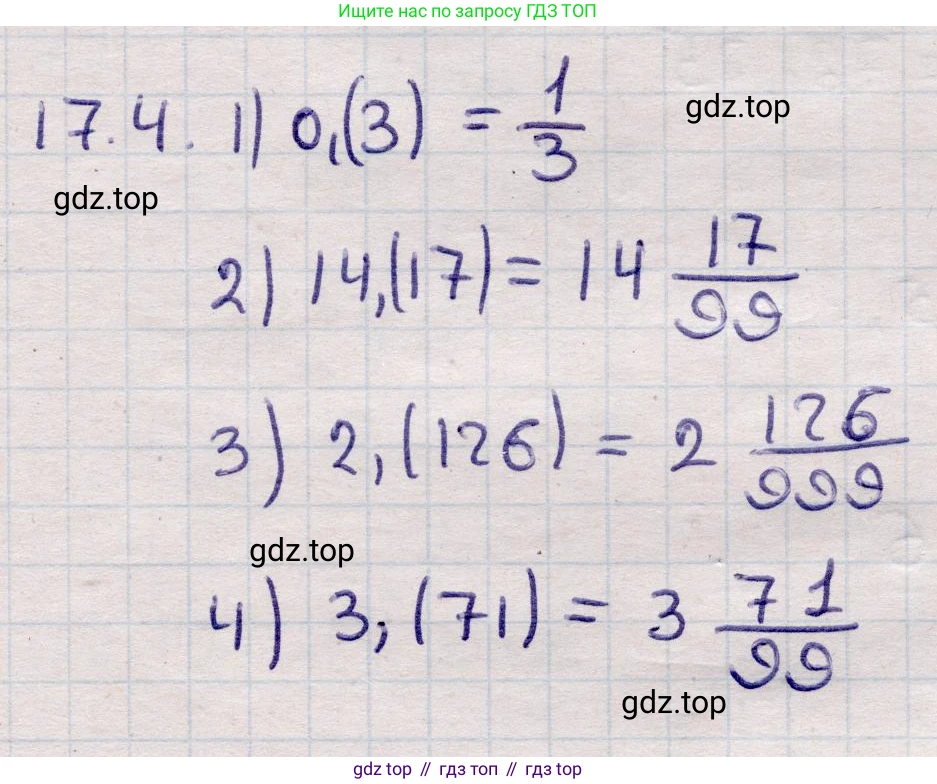 Ищите нас по запросу ГДЗ ТОП
17.4. 1) 0,(3) = 1/3
gdz.top
gdz.top
2) 14,(17) = 14 17/99
3) 2,(126) = 2 126/999
gdz.top
4) 3,(71) = 3 71/99
gdz.top
gdz top // гдз топ // гдз top